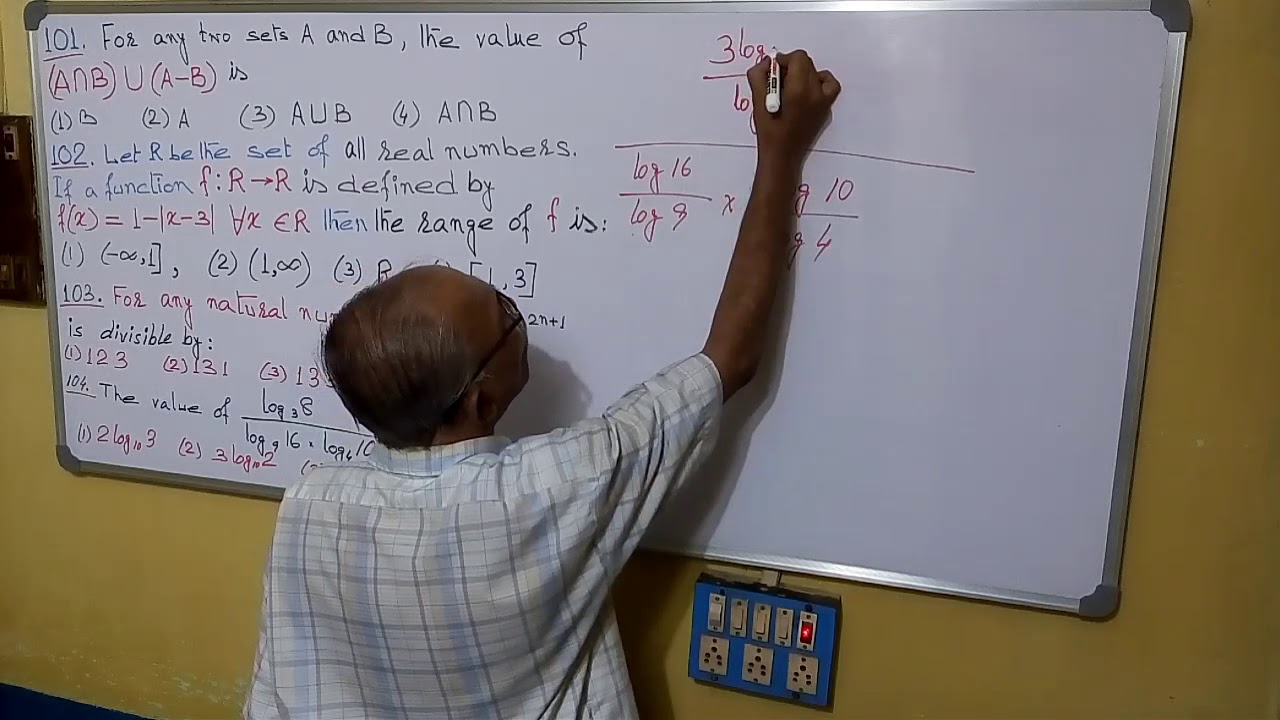 101. For any two sets A and B, the value of
(A∩B) ∪ (A−B) is
(1) B (2) A (3) A∪B (4) A∩B
102. Let R be the set of all real numbers.
If a function f: R→R is defined by
f(x) = 1−|x−3| ∀x ∈R then the range of f is:
(1) (-∞,1], (2) (1,∞) (3) R , 3]
103. For any natural 2n+1
is divisible by:
(1) 123 (2) 131 (3)
104. The value of log₃8
log₉16 × log₄10
(1) 2log₁₀3 (2) 3log₁₀2
3log
log 16 10
log 9 × 4